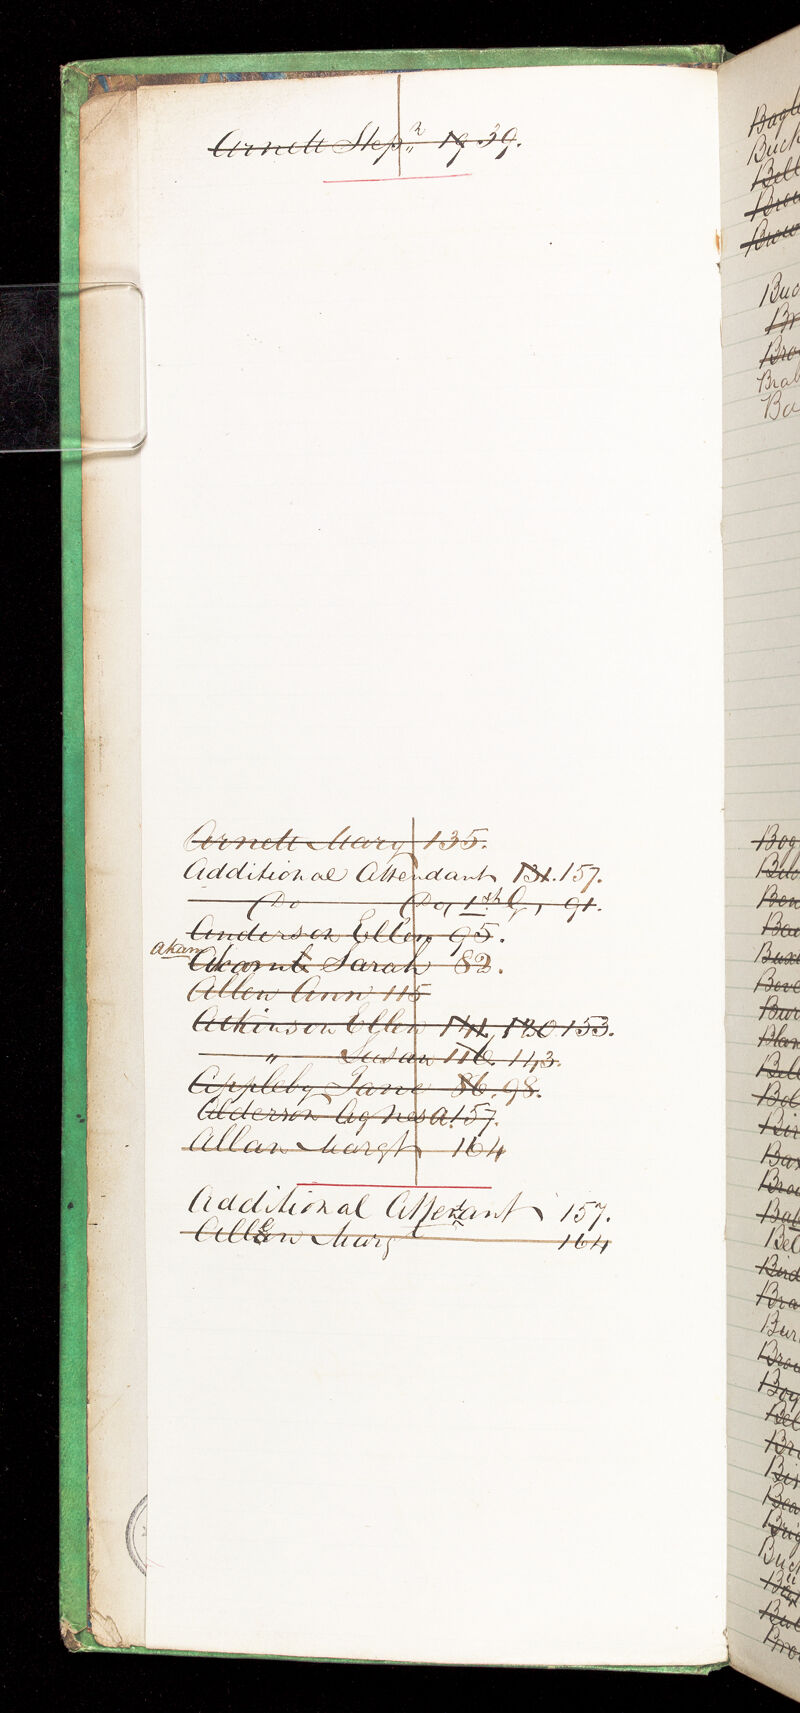 Arnett Stepn 19 39.
Arnett Mary 135.
Additional Attendant 131. 157.
Do Do, 1st G, 91.
Anderson Ellen 95.
Akam
Akamb Sarah 82.
Allen Ann 115
Atkinson Ellen 141, 130 153.
" Susan 116. 143.
Appleby Jane 86. 98.
Alderson Agnes A. 157.
Allan Margt 164
Additional Attendant 157.
Allen Marg 164
Buck
Bell
Brow
Brow
Buc
Br
Bro
Brab
Ba
Bog
Ben
Bur
Blan
Bell
Bir
Bax
Bel
Bird
Bra
Bur
Brow
Boy
Bel
Br
Bea
Brig
Buck